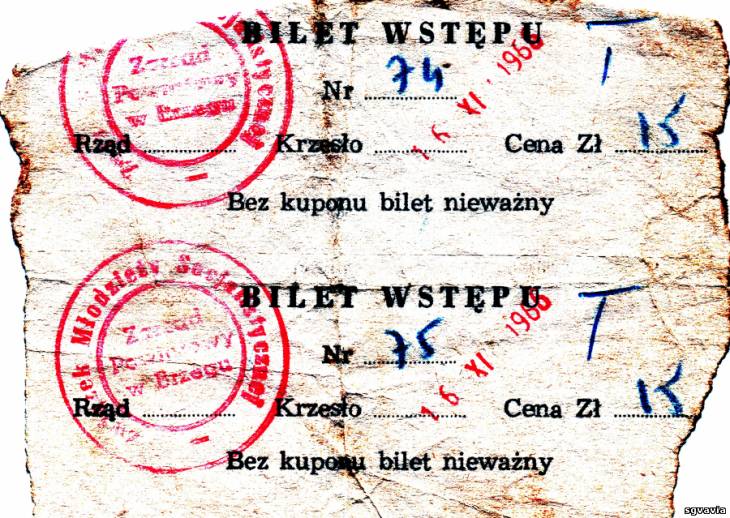 BILET WSTĘPU T
Nr 74 16 XI 1966
Rząd Krzesło Cena Zł 15
Bez kuponu bilet nieważny
Młodzieży Socjalistycznej
Zarząd
Powiatowy
w Brzegu
BILET WSTĘPU T
Nr 75 16 XI 1966
Rząd Krzesło Cena Zł 15
Bez kuponu bilet nieważny
Związek Młodzieży Socjalistycznej
Zarząd
Powiatowy
w Brzegu
sgvavia